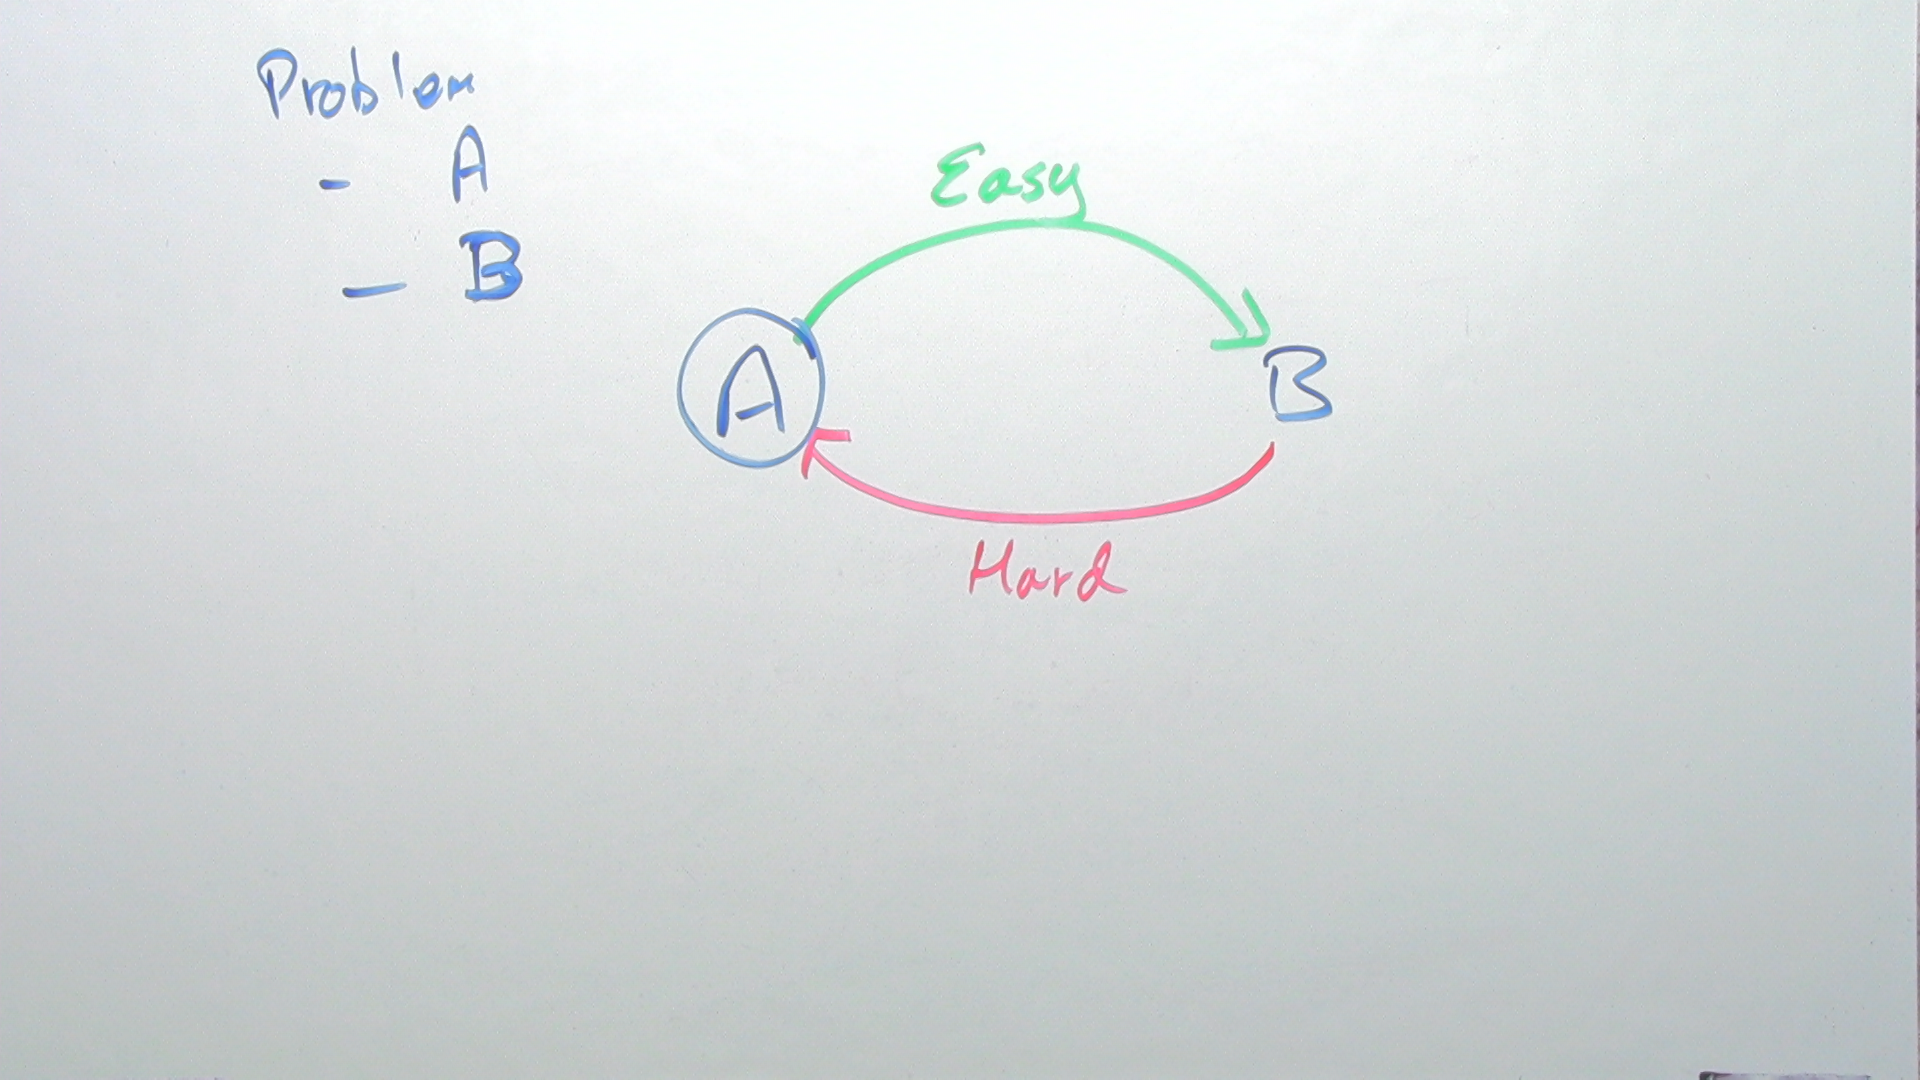 Problem
- A
- B
Easy
A
B
Hard